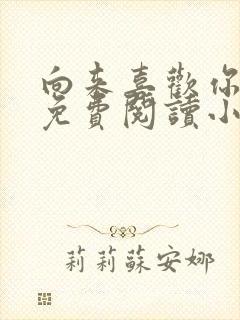 向来喜歡你
免費閱讀小
莉莉蘇安娜